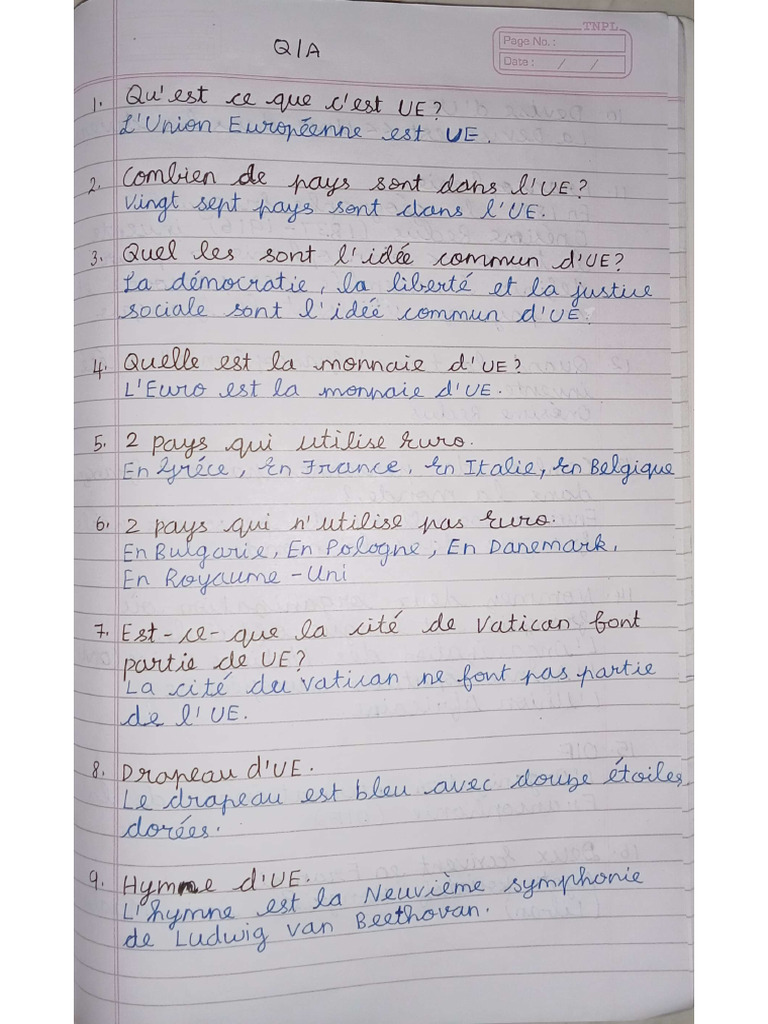 TNPL
Page No. :
Date : / /
Q/A
1. Qu'est ce que c'est UE?
L'Union Européenne est UE.
2. Combien de pays sont dans l'UE?
Vingt sept pays sont dans l'UE.
3. Quel les sont l'idée commun d'UE?
La démocratie, la liberté et la justice
sociale sont l'idée commun d'UE.
4. Quelle est la monnaie d'UE?
L'Euro est la monnaie d'UE.
5. 2 pays qui utilise Euro.
En Gréce, En France, En Italie, En Belgique
6. 2 pays qui n'utilise pas Euro.
En Bulgarie, En Pologne, En Danemark,
En Royaume-Uni
7. Est-ce-que la cité de Vatican font
partie de UE?
La cité du Vatican ne font pas partie
de l'UE.
8. Drapeau d'UE.
Le drapeau est bleu avec douze étoiles
dorées.
9. Hymne d'UE.
L'hymne est la Neuvième symphonie
de Ludwig van Beethovan.